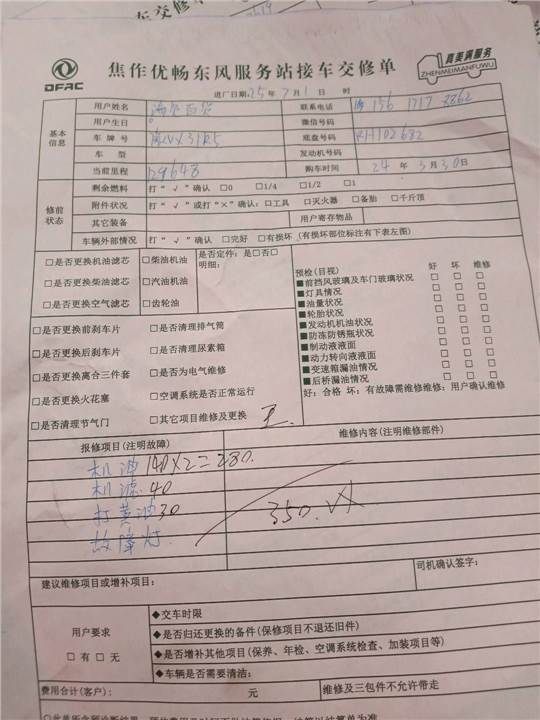 DFAC
焦作优畅东风服务站接车交修单
真美满服务
ZHENMEIMANFUWU
进厂日期:25年7月1日 时
基本信息
用户姓名 联系电话 156 1717 3862
用户生日 微信号码
车牌号 底盘号码 RH102682
车型 发动机号码
当前里程 129648 购车时间 24年3月30日
修前状态
剩余燃料 打“√”确认 □0 □1/4 □1/2 □1
附件状况 打“√”或打“×”确认:□工具 □灭火器 □备胎 □千斤顶
其它装备 用户寄存物品
车辆外部情况 打“√”确认 □完好 □有损坏（有损坏部位标注有下表左图)
□是否更换机油滤芯 □柴油机油 是否定件: 是□否□
明细:
□是否更换柴油滤芯 □汽油机油
□是否更换空气滤芯 □齿轮油
预检(目视) 好 坏 维修
■前挡风玻璃及车门玻璃状况 □ □ □
■灯具情况 □ □ □
■油量状况 □ □ □
■轮胎状况 □ □ □
■发动机机油状况 □ □ □
■防冻防锈瓶状况 □ □ □
■制动液液面 □ □ □
■动力转向液液面 □ □ □
■变速箱漏油情况 □ □ □
■后桥漏油情况 □ □ □
好: 合格 坏: 有故障需维修维修: 用户确认维修
□是否更换前刹车片 □是否清理排气筒
□是否更换后刹车片 □是否清理尿素箱
□是否更换离合三件套 □是否为电气维修
□是否更换火花塞 □空调系统是否正常运行
□是否清理节气门 □其它项目维修及更换
报修项目(注明故障) 维修内容(注明维修部件)
机油 140×2=280.
机滤 40
打黄油 30
故障灯.
350.
司机确认签字:
建议维修项目或增补项目:
用户要求
□有 □无
◆交车时限
◆是否归还更换的备件(保修项目不退还旧件)
◆是否增补其他项目(保养、年检、空调系统检查、加装项目等)
◆车辆是否需要清洁:
费用合计(客户): 元 维修及三包件不允许带走